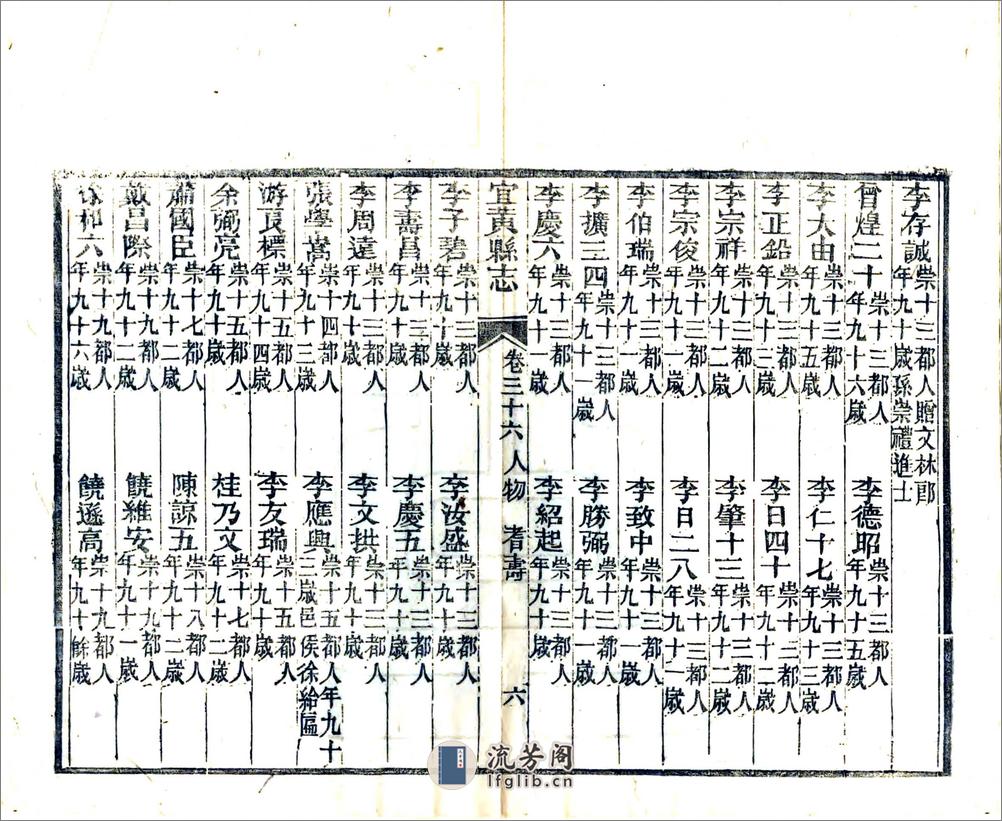 李存誠崇十三都人贈文林郎年九十歲孫崇禮進士
曾煌二十崇十三都人年九十六歲 李德昭崇十三都人年九十五歲
李大由崇十三都人年九十五歲 李仁十七崇十三都人年九十三歲
李正鉛崇十三都人年九十三歲 李日四十崇十三都人年九十二歲
李宗祥崇十三都人年九十二歲 李肇十三崇十三都人年九十二歲
李宗俊崇十三都人年九十一歲 李日二八崇十三都人年九十一歲
李伯瑞崇十三都人年九十一歲 李致中崇十三都人年九十一歲
李擴三四崇十三都人年九十一歲 李勝弼崇十三都人年九十一歲
李慶六崇十三都人年九十一歲 李紹起崇十三都人年九十歲
宜黃縣志 卷三十六人物 耆壽 六
李子碧崇十三都人年九十歲 李汝盛崇十三都人年九十歲
李壽昌崇十三都人年九十歲 李慶五崇十三都人年九十歲
李周達崇十三都人年九十歲 李文拱崇十三都人年九十歲
張學嵩崇十四都人年九十三歲 李應興崇十五都人年九十三歲邑侯徐給匾
游良標崇十五都人年九十四歲 李友瑞崇十五都人年九十歲
余弼亮崇十五都人年九十歲 桂乃文崇十七都人年九十二歲
蕭國臣崇十七都人年九十二歲 陳諒五崇十八都人年九十二歲
戴昌際崇十九都人年九十二歲 饒維安崇十九都人年九十一歲
徐和六崇十九都人年九十六歲 饒遜高崇十九都人年九十餘歲
流芳阁
lfglib.cn